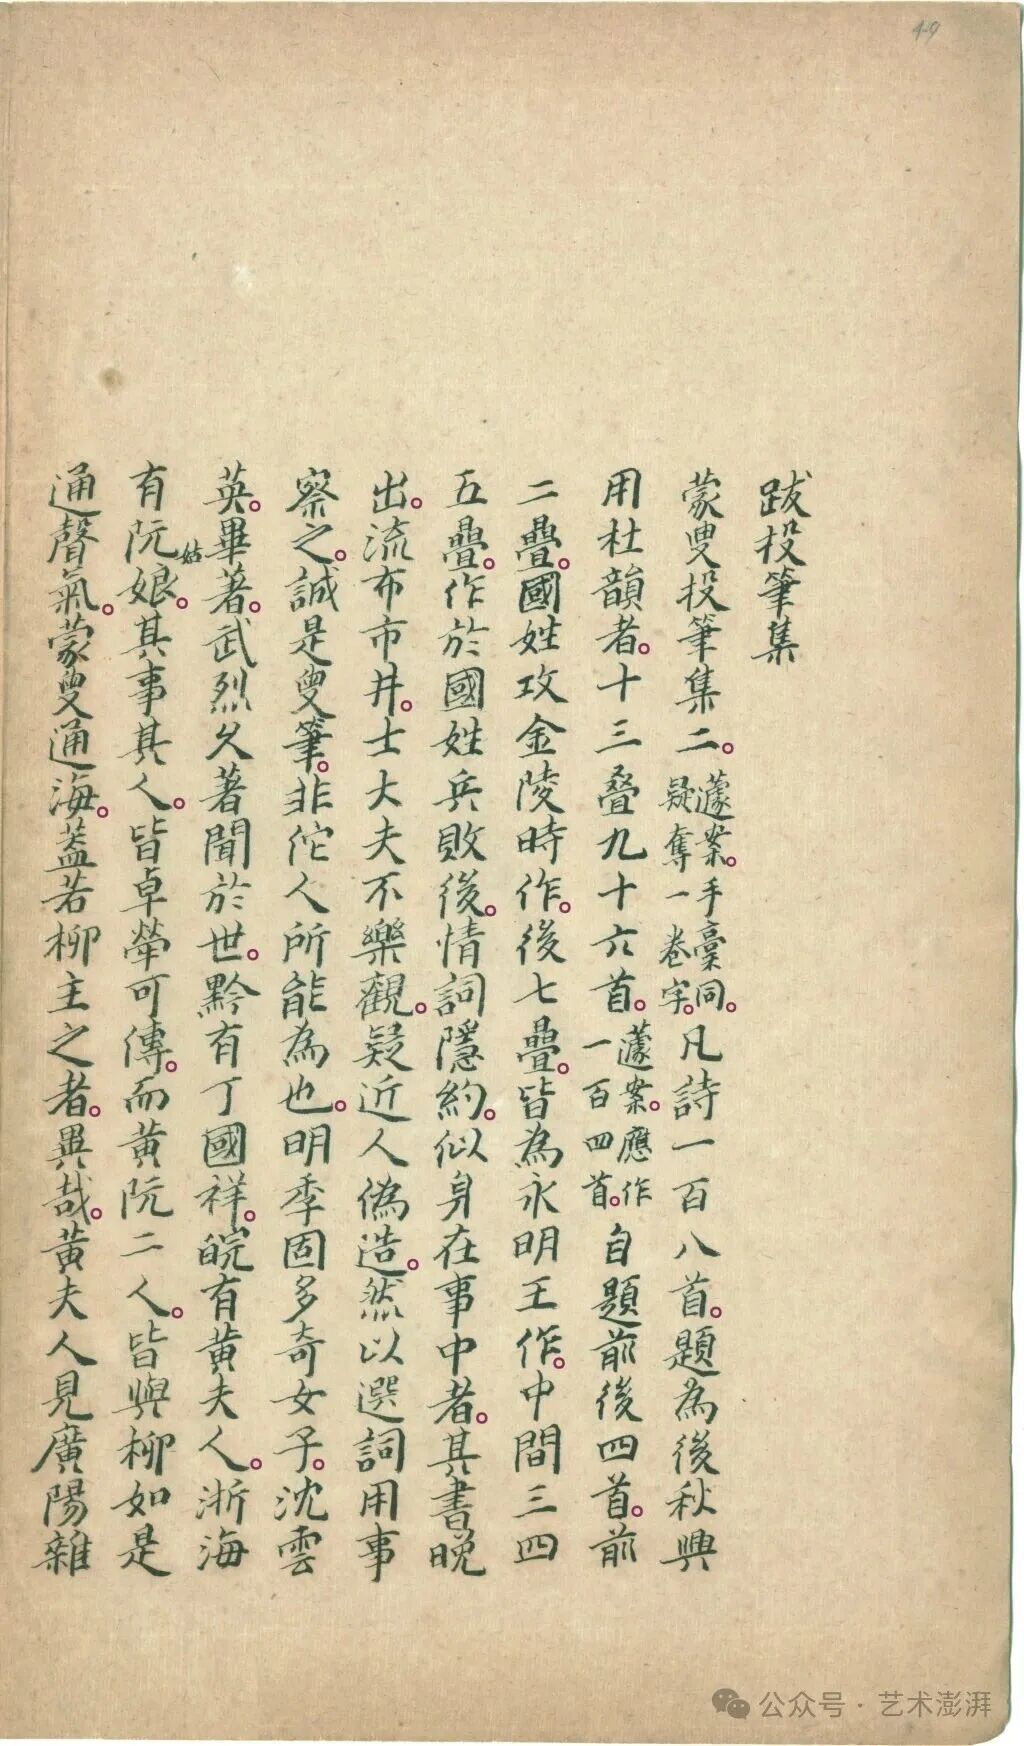 49
跋投筆集
蒙叟投筆集二。蘧案。手稾同。疑奪一卷字。凡詩一百八首。題為後秋興
用杜韻者。十三疊九十六首。蘧案。應作一百四首。自題前後四首。前
二疊。國姓攻金陵時作。後七疊。皆為永明王作。中間三四
五疊。作於國姓兵敗後。情詞隱約。似身在事中者。其書晚
出。流布市井。士大夫不樂觀。疑近人偽造。然以選詞用事
察之。誠是叟筆。非佗人所能為也。明季固多奇女子。沈雲
英。畢著。武烈久著聞於世。黔有丁國祥。皖有黃夫人。浙海
有阮姑娘。其事其人。皆卓犖可傳。而黃阮二人。皆與柳如是
通聲氣。蒙叟通海。蓋若柳主之者。異哉。黃夫人見廣陽雜
公众号·艺术澎湃